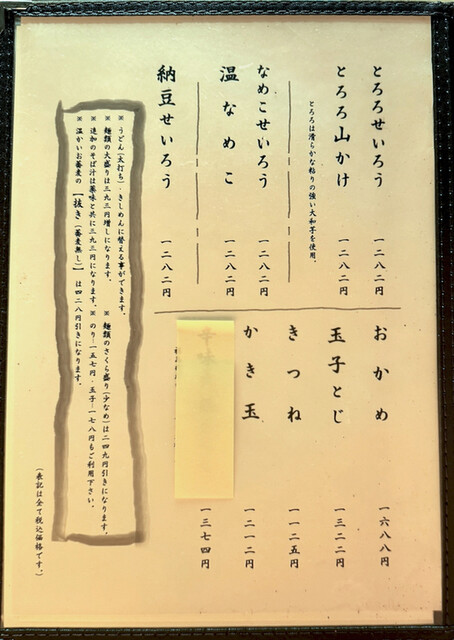 とろろせいろう 一二八二円
とろろ山かけ 一二八二円
とろろは滑らかな粘りの強い大和芋を使用。
なめこせいろう 一二八二円
温なめこ 一二八二円
納豆せいろう 一二八二円
おかめ 一六八八円
玉子とじ 一三二二円
きつね 一一二五円
かき玉 一二一二円
一三七四円
※うどん(太打ち)・きしめんに替える事ができます。
※麺類の大盛りは三九三円増しになります。 ※麺類のさくら盛り(少なめ)は二四九円引きになります。
※追加のそば汁は薬味と共に三九三円になります。 ※のり…一五七円・玉子…一七八円もご利用下さい。
※温かいお蕎麦の【抜き(蕎麦無し)】は四二八円引きになります。
(表記は全て税込価格です。)